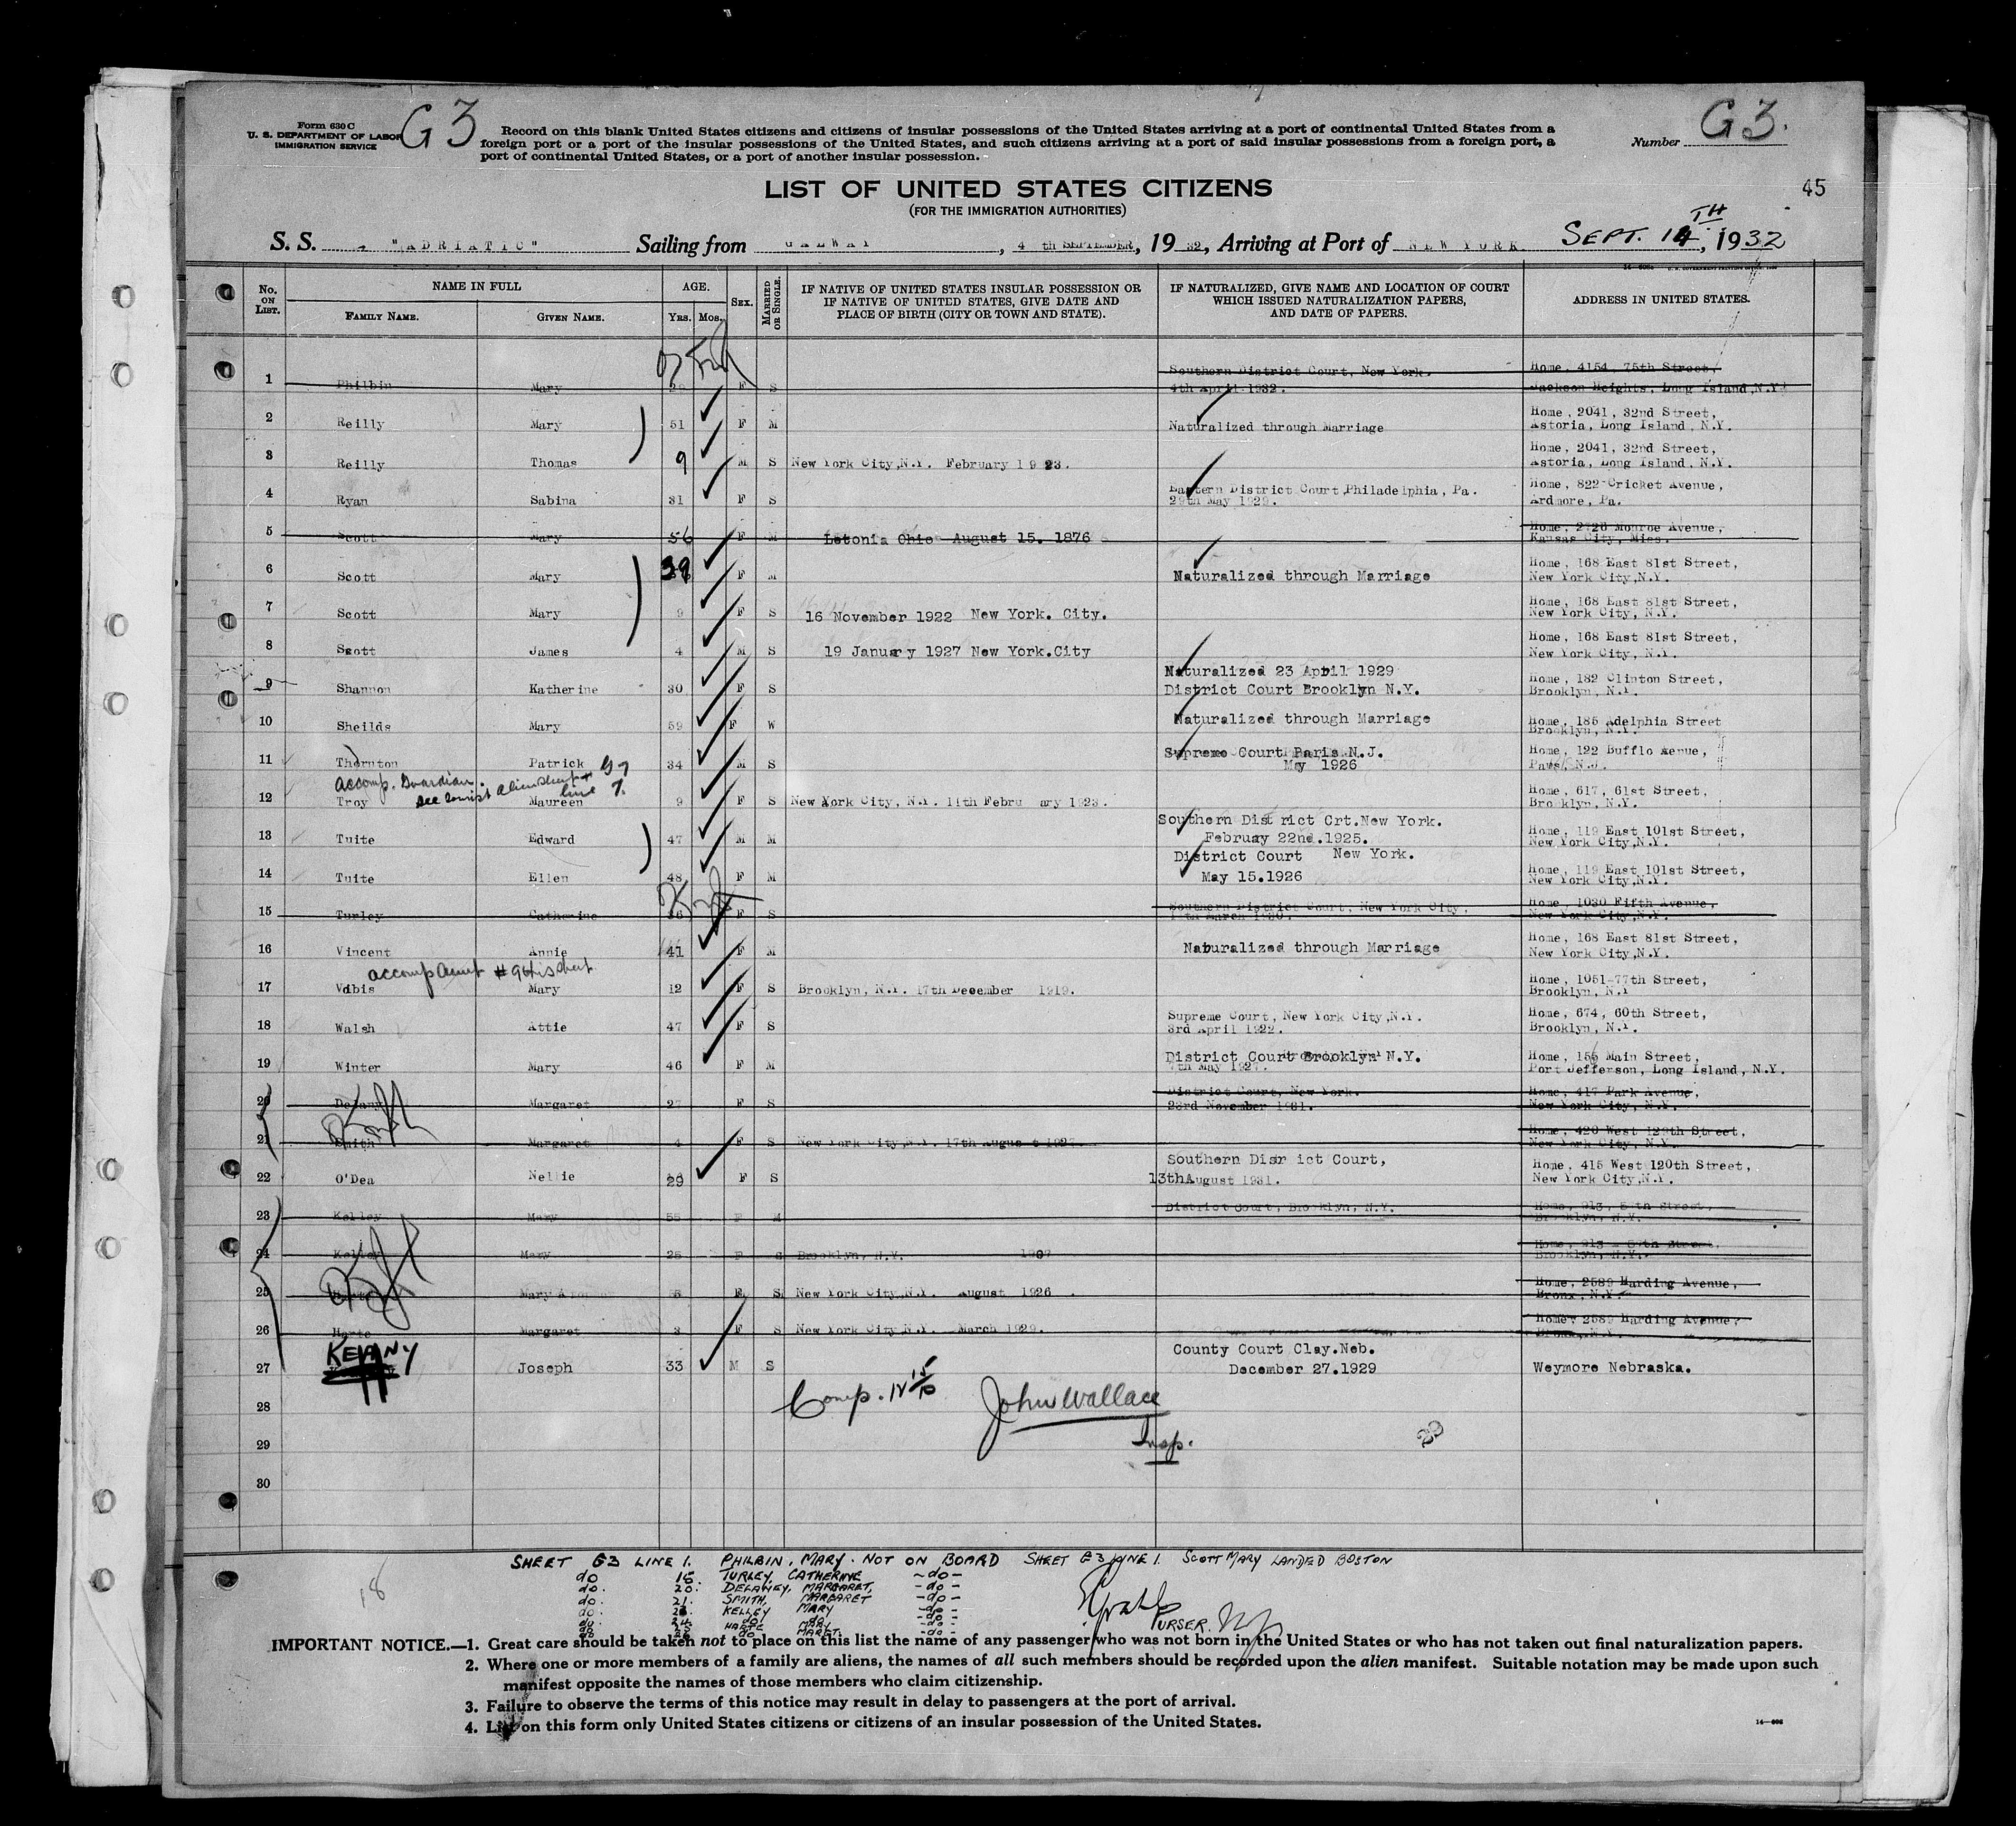 Form 630 C
U. S. DEPARTMENT OF LABOR
IMMIGRATION SERVICE
G3
Record on this blank United States citizens and citizens of insular possessions of the United States arriving at a port of continental United States from a
foreign port or a port of the insular possessions of the United States, and such citizens arriving at a port of said insular possessions from a foreign port, a
port of continental United States, or a port of another insular possession.
Number G3.
LIST OF UNITED STATES CITIZENS
(FOR THE IMMIGRATION AUTHORITIES)
45
S. S. "ADRIATIC" Sailing from GALWAY, 4 th SEPTEMBER, 1932, Arriving at Port of NEW YORK SEPT. 14TH, 1932
No. ON LIST. NAME IN FULL FAMILY NAME. GIVEN NAME. AGE. YRS. MOS. SEX. MARRIED OR SINGLE. IF NATIVE OF UNITED STATES INSULAR POSSESSION OR IF NATIVE OF UNITED STATES, GIVE DATE AND PLACE OF BIRTH (CITY OR TOWN AND STATE). IF NATURALIZED, GIVE NAME AND LOCATION OF COURT WHICH ISSUED NATURALIZATION PAPERS, AND DATE OF PAPERS. ADDRESS IN UNITED STATES.
1 Philbin Mary F S Southern District Court, New York. 4th April 1932. Home, 4154, 75th Street, Jackson Heights, Long Island, N.Y.
2 Reilly Mary 51 F M Naturalized through Marriage Home, 2041, 32nd Street, Astoria, Long Island, N.Y.
3 Reilly Thomas 9 M S New York City, N.Y. February 1923. Home, 2041, 32nd Street, Astoria, Long Island, N.Y.
4 Ryan Sabina 31 F S Eastern District Court Philadelphia, Pa. 29th May 1929. Home, 822 Cricket Avenue, Ardmore, Pa.
5 Scott Mary 56 F M Letonia Ohio August 15. 1876 Home, 2726 Monroe Avenue, Kansas City, Miss.
6 Scott Mary 39 F M Naturalized through Marriage Home, 168 East 81st Street, New York City, N.Y.
7 Scott Mary 9 F S 16 November 1922 New York. City. Home, 168 East 81st Street, New York City, N.Y.
8 Scott James 4 M S 19 January 1927 New York.City Home, 168 East 81st Street, New York City, N.Y.
9 Shannon Katherine 30 F S Naturalized 23 April 1929 District Court Brooklyn N.Y. Home, 182 Clinton Street, Brooklyn, N.Y.
10 Sheilds Mary 59 F W Naturalized through Marriage Home, 185 Adelphia Street Brooklyn, N.Y.
11 Thornton Patrick 34 M S Supreme Court Paris N.J. May 1926 Home, 122 Bufflo Avenue, N.J.
accomp. Guardian. see tourist alien sheet line 7.
12 Troy Maureen 9 F S New York City, N.Y. 11th February 1923. Home, 617, 61st Street, Brooklyn, N.Y.
13 Tuite Edward 47 M M Southern District Crt. New York. February 22nd.1925. Home, 119 East 101st Street, New York City, N.Y.
14 Tuite Ellen 48 F M District Court New York. May 15.1926 Home, 119 East 101st Street, New York City, N.Y.
15 Turley Catherine 36 F S Southern District Court, New York City, March 1930. Home, 1030 Fifth Avenue, New York City, N.Y.
16 Vincent Annie 41 F M Naturalized through Marriage Home, 168 East 81st Street, New York City, N.Y.
accomp Aunt #9 this sheet
17 Mary 12 F S Brooklyn, N.Y. 17th December 1919. Home, 1051-77th Street, Brooklyn, N.Y
18 Walsh Attie 47 F S Supreme Court, New York City, N.Y. 3rd April 1922. Home, 674, 60th Street, Brooklyn, N.Y.
19 Winter Mary 46 F M District Court Brooklyn N.Y. 7th May 1927. Home, 156 Main Street, Port Jefferson, Long Island, N.Y.
20 Delany Margaret 27 F S District Court, New York. 23rd November 1931. Home, 417 Park Avenue, New York City, N.Y.
21 Smith Margaret 4 F S New York City, N.Y. 17th August 1927. Home, 420 West 129th Street, New York City, N.Y.
22 O'Dea Nellie 29 F S Southern District Court, 13th August 1931. Home, 415 West 120th Street, New York City, N.Y.
23 Kelley Mary 55 F M District Court, Brooklyn, N.Y. Home, 913, Street, Brooklyn, N.Y.
24 Kelley Mary 25 F S Brooklyn, N.Y. 1907 Home, 913 - 57th Street, Brooklyn, N.Y.
25 Harte Mary F S New York City, N.Y. August 1926. Home, 2589 Harding Avenue, Bronx, N.Y.
26 Harte Margaret 3 F S New York City N.Y. March 1929. Home, 2589 Harding Avenue, Bronx, N.Y.
27 Joseph 33 M S County Court Clay.Neb. December 27.1929 Weymore Nebraska.
28
Comp. John Wallace
29
Insp.
30
SHEET G3 LINE 1. PHILBIN, MARY. NOT ON BOARD SHEET G3 LINE 1. SCOTT MARY LANDED BOSTON
do 15. TURLEY, CATHERINE -do-
do. 20. DELANEY, MARGARET, -do-
do. 21. SMITH, MARGARET -do-
do. 23. KELLEY MARY -do-
do. 24. do do -do-
do 25 HARTE MARY -do-
do 26 do MARGT. -do-
PURSER.
18
IMPORTANT NOTICE.—1. Great care should be taken not to place on this list the name of any passenger who was not born in the United States or who has not taken out final naturalization papers.
2. Where one or more members of a family are aliens, the names of all such members should be recorded upon the alien manifest. Suitable notation may be made upon such
manifest opposite the names of those members who claim citizenship.
3. Failure to observe the terms of this notice may result in delay to passengers at the port of arrival.
4. List on this form only United States citizens or citizens of an insular possession of the United States.